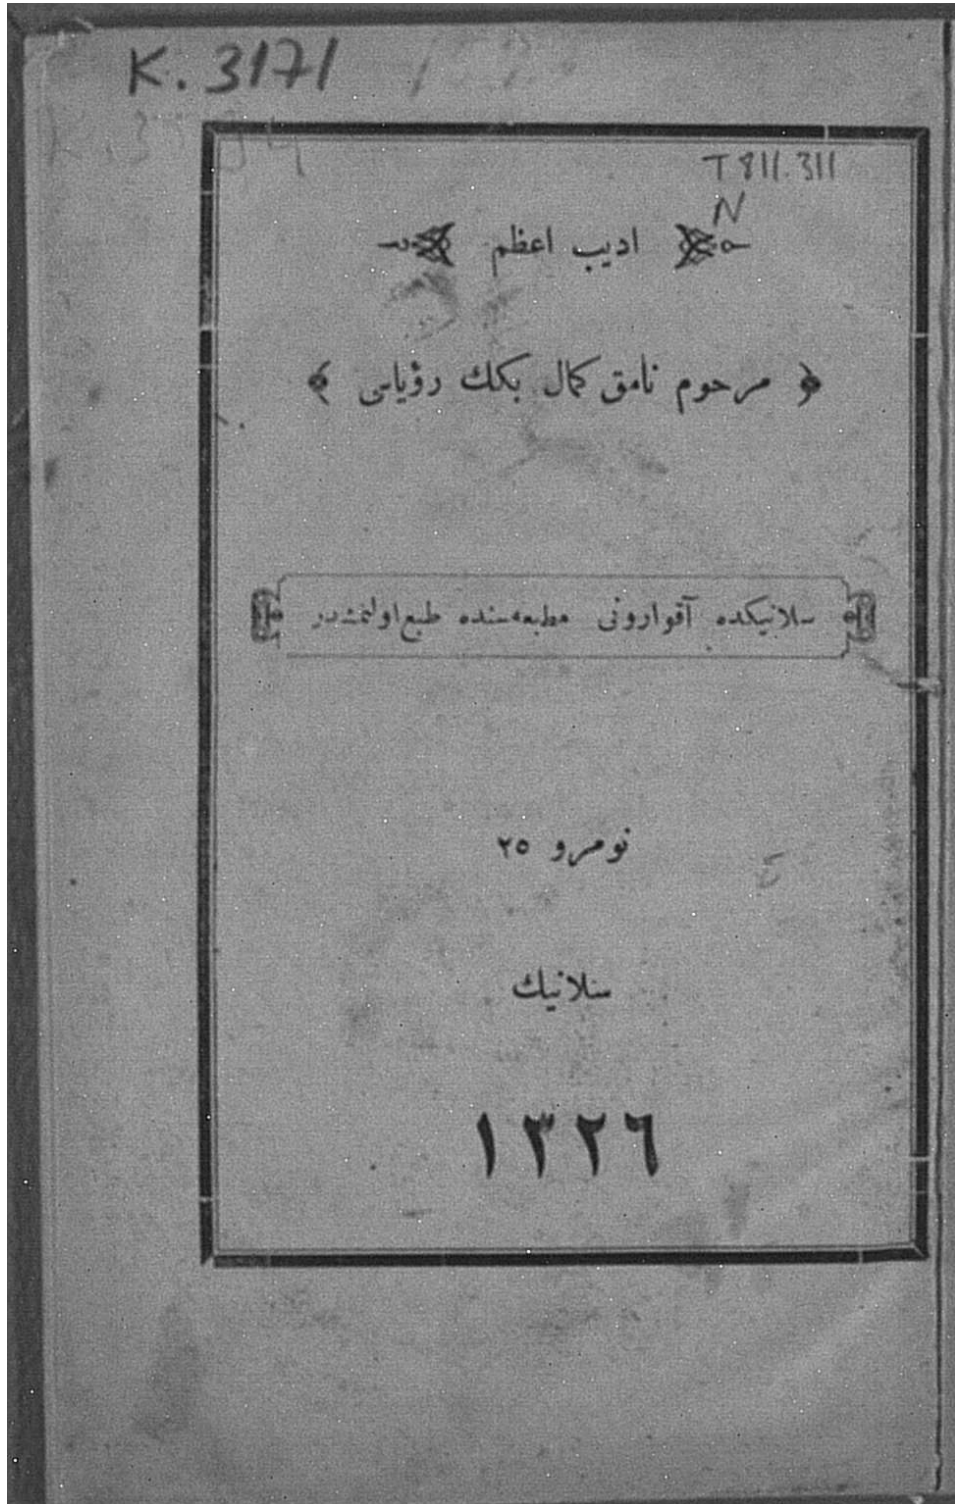 K. 3171
T 811.311
N
اديب اعظم
مرحوم نامق كمال بكك رؤياسى
سلانيكده آقوارونى مطبعه‌سنده طبع اولنمشدر
نومرو ٢٥
سلانيك
١٣٢٦